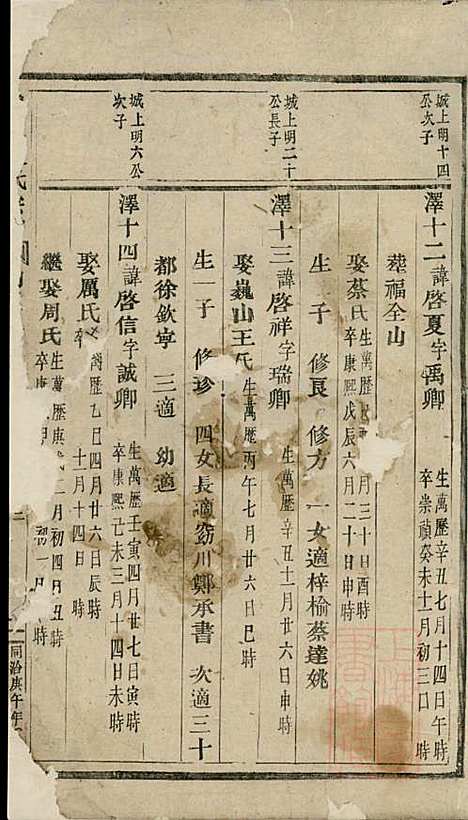 城上明十四
公次子
澤十二諱啓夏字禹卿
生萬歷辛丑七月十四日午時
卒崇禎癸未十一月初三日 時
葬福全山
娶蔡氏
生萬歷 月三十日酉時
卒康熙戊辰六月二十日申時
生 子 修良 修方 一女適梓榆蔡達姚
城上明二十
公長子
澤十三諱啓祥字瑞卿
生萬歷辛丑十一月廿六日申時
娶巍山王氏
生萬歷丙午七月廿六日巳時
生一子 修珍 四女長適窈川鄭承書 次適三十
都徐欽寧 三適 幼適
城上明六公
次子
澤十四諱啓信字誠卿
生萬歷壬寅四月廿七日寅時
卒康熙己未三月十四日未時
娶厲氏
萬歷乙巳四月廿六日辰時
卒 十一月十四日 時
繼娶周氏
生萬歷庚戌二月初四日丑時
卒康 月初一日 時
同治庚午年